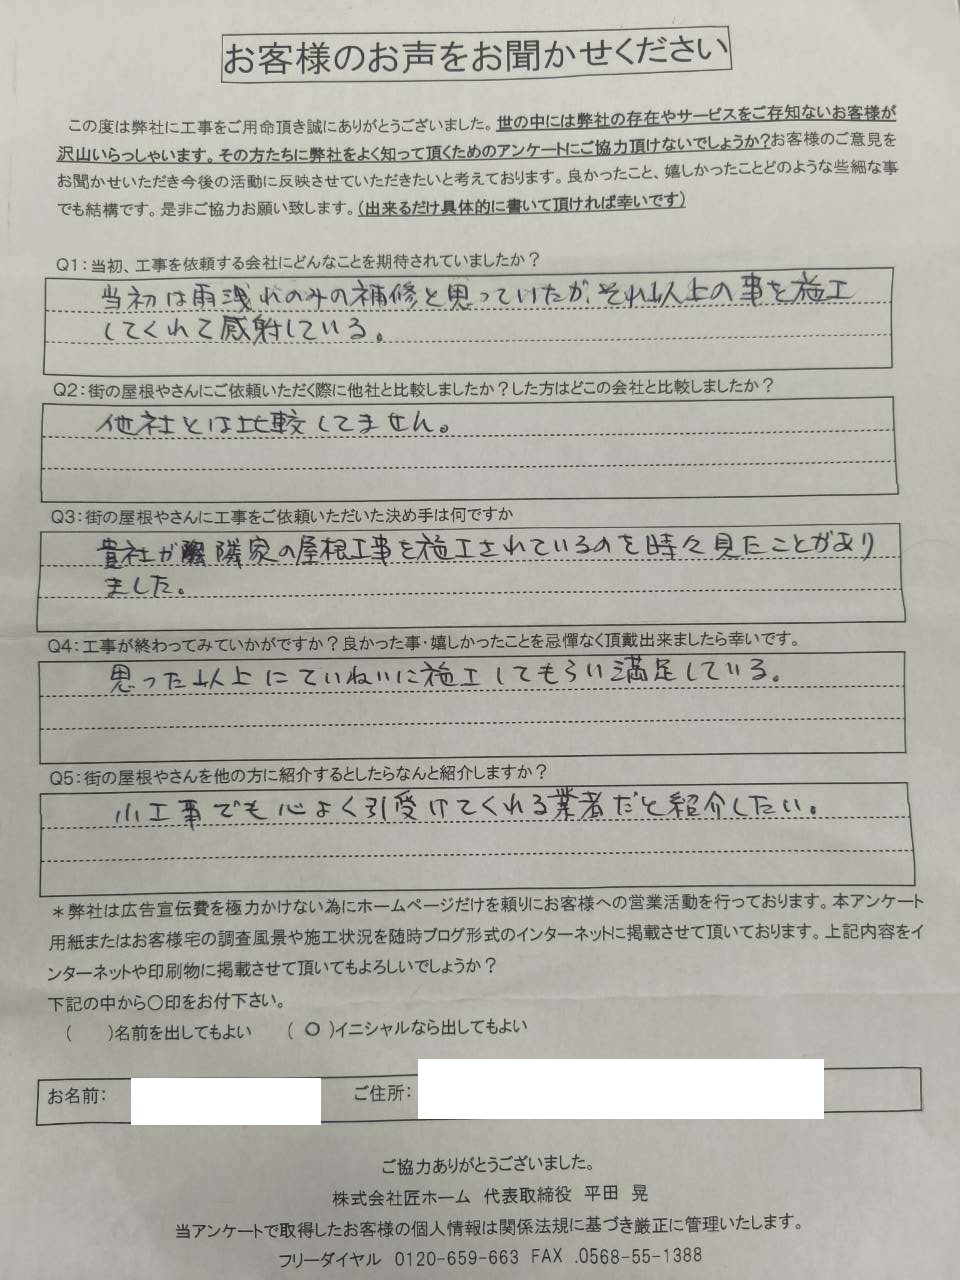 お客様のお声をお聞かせください
この度は弊社に工事をご用命頂き誠にありがとうございました。世の中には弊社の存在やサービスをご存知ないお客様が
沢山いらっしゃいます。その方たちに弊社をよく知って頂くためのアンケートにご協力頂けないでしょうか?お客様のご意見を
お聞かせいただき今後の活動に反映させていただきたいと考えております。良かったこと、嬉しかったことどのような些細な事
でも結構です。是非ご協力お願い致します。(出来るだけ具体的に書いて頂ければ幸いです)
Q1:当初、工事を依頼する会社にどんなことを期待されていましたか?
当初は雨洩れのみの補修と思っていたが、それ以上の事を施工
してくれて感射している。
Q2:街の屋根やさんにご依頼いただく際に他社と比較しましたか?した方はどこの会社と比較しましたか?
他社とは比較してません。
Q3:街の屋根やさんに工事をご依頼いただいた決め手は何ですか
貴社が隣家の屋根工事を施工されているのを時々見たことがあり
ました。
Q4:工事が終わってみていかがですか?良かった事・嬉しかったことを忌憚なく頂戴出来ましたら幸いです。
思った以上にていねいに施工してもらい満足している。
Q5:街の屋根やさんを他の方に紹介するとしたらなんと紹介しますか?
小工事でも心よく引受けてくれる業者だと紹介したい。
*弊社は広告宣伝費を極力かけない為にホームページだけを頼りにお客様への営業活動を行っております。本アンケート
用紙またはお客様宅の調査風景や施工状況を随時ブログ形式のインターネットに掲載させて頂いております。上記内容をイ
ンターネットや印刷物に掲載させて頂いてもよろしいでしょうか?
下記の中から〇印をお付下さい。
( )名前を出してもよい (○)イニシャルなら出してもよい
お名前: ご住所:
ご協力ありがとうございました。
株式会社匠ホーム 代表取締役 平田 晃
当アンケートで取得したお客様の個人情報は関係法規に基づき厳正に管理いたします。
フリーダイヤル 0120-659-663 FAX .0568-55-1388